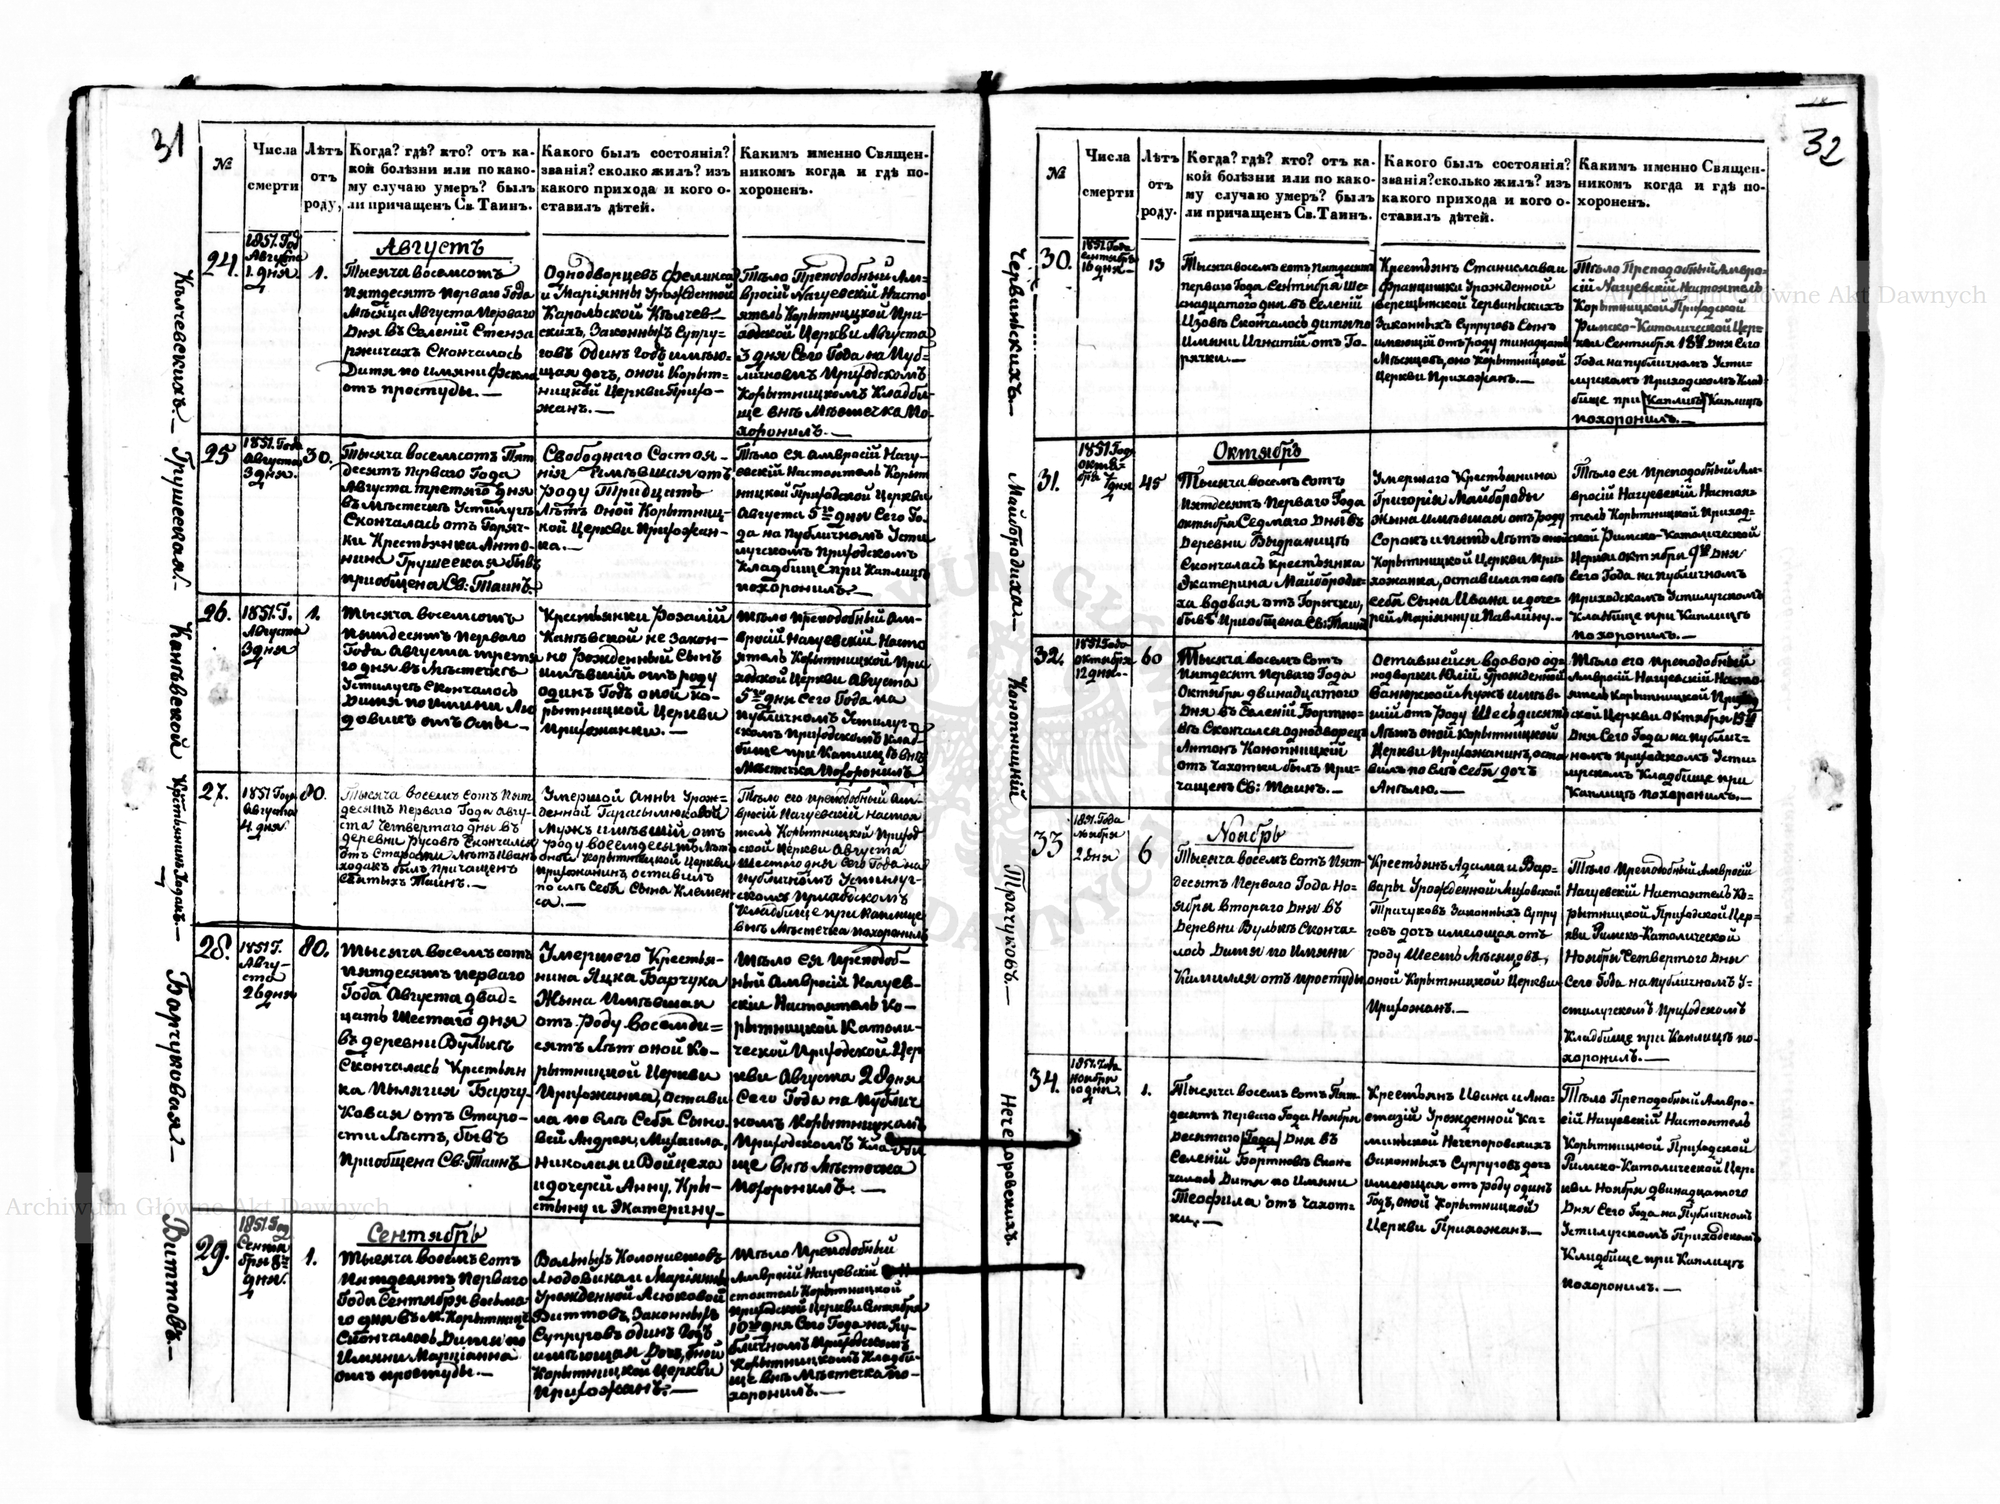 31
№
Числа
смерти
Лѣтъ
отъ
роду,
Когда? гдѣ? кто? отъ ка-
кой болѣзни или по како-
му случаю умеръ? былъ
ли причащенъ Св. Таинъ.
Какого былъ состоянія?
званія? сколко жилъ? изъ
какого прихода и кого о-
ставилъ дѣтей.
Какимъ именно Священ-
никомъ когда и гдѣ по-
хороненъ.
24.
1851. Год
Августа
1. дня
1.
Августъ
Тысяча восемсотъ
пятдесятъ перваго Года
Мѣсяца Августа перваго
Дня въ Селеній Стенза
ржичахъ Скончалось
Дитя по имяни Фекла
отъ простуды. —
Однодворцевъ Феликса
и Маріянны Урожденной
Карольской Кѣлчев-
скихъ, Законныхъ Супру-
говъ Одинъ Годъ имѣю-
щая дочъ, оной Корыт-
ницкой Церкви Прихо-
жанъ. —
Тѣло Преподобный Ам-
вросій Нагуевскій Насто
ятель Корытницкой При-
ходской Церкви Августа
3 дня Сего Года на Пуб-
личномъ Приходскомъ
Корытницкомъ Кладби-
ще внѣ Мѣстечка По-
хоронилъ. —
Кѣлчевскихъ —
25
1851. Года
Августа
3 дня.
30.
Тысяча восемсотъ Пят
десятъ перваго Года
Августа третяго дня
въ Мѣстечкѣ Устилугѣ
Скончалась отъ Горяч-
ки Крестьянка Анто-
нина Грушецкая бывъ
приобщена Св: Таинъ.
Свободнаго Состоя-
нія Имѣвшая отъ
роду Тридцать
Лѣтъ оной Корытниц-
кой Церкви Прихожан-
ка. —
Тѣло ея Амвросій Нагу-
евскій Настоятель Корыт
ницкой Приходской Церкви
Августа 5го дня Сего Го-
да на публичномъ Усти
лугскомъ приходскомъ
Кладбище при Каплицѣ
похоронилъ. —
26.
1851. Г.
Августа
3 дня
1.
Тысяча восемсотъ
пятдесятъ перваго
Года Августа третя
го дня въ Мѣстечкѣ
Устилугѣ Скончалось
Дитя по имяни Лю
довикъ отъ Оспы —
Крестьянки Розалій
Канѣвской не закон-
но рожденный Сынъ
имѣвшій отъ роду
одинъ Годъ оной ко-
рытницкой Церкви
Прихожанки. —
Тѣло преподобный Ам-
вросій Нагуевскій Насто
ятель Корытницкой При
ходской Церкви Августа
5го дня Сего Года на
публичномъ Устилуг-
скомъ приходскомъ Клад-
бище при Каплицѣ внѣ
Мѣстечка Похоронилъ
Канѣвской
27.
1851 Года
Августа
4. дня
80.
Тысяча восемъ сотъ Пят
десятъ перваго Года Авгу-
ста Четвертаго дня въ
деревни Русовѣ Скончался
отъ Старости Лѣтъ Иванъ
Ходакъ былъ причащенъ
Святыхъ Таинъ. —
Умершой Анны Урож-
денной Гарасымюковой
Мужъ имѣвшій отъ
роду восемдесятъ Лѣтъ
оной Корытницкой Церкви
прихожанинъ, оставилъ
по слѣ Себя Сына Клемен
са. —
Тѣло его преподобный Ам-
вросій Нагуевскій Настоя
тель Корытницкой Приход-
ской Церкви Августа
Шестаго дня Сего Года на
публичномъ Устилуг-
скомъ Приходскомъ
Кладбище при Каплице
внѣ Мѣстечка похоронилъ
28.
1851 Г.
Авгу-
ста
26 дня
80.
Тысяча восемъ сотъ
пятдесятъ перваго
Года Августа двад-
цать Шестаго дня
въ деревни Вулькѣ
Скончалась Крестьян
ка Пылягия Барчу-
ковая отъ Старо-
сти Лѣтъ, бывъ
Приобщена Св: Таинъ
Умершего Крестья-
нина Яцка Барчука
Жына Имѣвшая
отъ роду восемде-
сятъ Лѣтъ оной Ко-
рытницкой Церкви
Прихожанка, Остави
ла по слѣ Себя Сыно-
вей Андрея, Михаила,
Николая и Войцеха
и дочерѣй Анну, Кры-
стыну и Экатерину —
Тѣло ея Преподоб-
ный Амвросій Нагуев-
скій Настоятель Ко-
рытницкой Католи-
ческой Приходской Цер
кви Августа 28 дня
Сего Года на публич
номъ Корытницкомъ
Приходскомъ Кладби
ще внѣ Мѣстечка
Похоронилъ. —
Барчуковая —
29.
1851 Год
Сентя
бря 8го
дня.
1.
Сентябрь
Тысяча восемъ сотъ
Пятдесятъ Перваго
Года Сентября восьма
го дня въ М. Корытницѣ
Скончалось Дитя по
Имяни Марціанна
отъ простуды. —
Вольныхъ Колонистовъ
Людовика и Маріянны
Урожденной Асюковой
Виттовъ, Законныхъ
Супруговъ один Годъ
имѣющая Дочъ, оной
Корытницкой Церкви
Прихожанъ. —
Тѣло Преподобный
Амвросій Нагуевскій Н
стоятель Корытницкой
приходской Церкви Сентября
10го дня Сего Года на Пу-
бличномъ Приходскомъ
Корытницкомъ Кладби-
ще внѣ Мѣстечка по-
хоронилъ. —
Виттовъ. —
32
№
Числа
смерти
Лѣтъ
отъ
роду.
Когда? гдѣ? кто? отъ ка-
кой болѣзни или по како-
му случаю умеръ? былъ
ли причащенъ Св. Таинъ.
Какого былъ состоянія?
званія? сколько жилъ? изъ
какого прихода и кого о-
ставилъ дѣтей.
Какимъ именно Священ-
никомъ когда и гдѣ по-
хороненъ.
30.
1851 Года
Сентября
16 дня
13
Тысяча восемъ сотъ пятдесятъ
перваго Года Сентября Ше-
снадцатого дня въ Селеній
Изовѣ Скончалось дитя по
имяни Игнатій отъ Го-
рячки. —
Крестьянъ Станислава и
Францишки Урожденной
Верещынской Червиньскихъ
Законныхъ Супруговъ Сынъ
имеющій отъ роду тинадцать
Мѣсяцовъ, оно Корытницкой
Церкви Прихожанъ. —
Тѣло Преподобный Амвро-
сій Нагуевскій Настоятель
Корытницкой Приходской
Римско-Католической Цер-
кви Сентября 18го Дня Сего
Года на публичномъ Усти-
лугскомъ Приходскомъ Клад
бище при Каплицѣ Каплицѣ
похоронилъ. —
Червиньскихъ. —
31.
1851 Года
Октя-
бря 7
дня
45
Октябрь
Тысяча восемъ сотъ
пятдесятъ Перваго Года
Октября Седмаго Дня въ
Деревни Выдраницѣ
Скончалась крестьянка
Экатерина Майбороди-
ха вдовая отъ Горячки,
бывъ Приобщена Св: Таинъ
Умершаго Крестьянина
Григорія Майбороды
Жына имѣвшая отъ роду
Сорокъ и пять Лѣтъ оной
Корытницкой Церкви При-
хожанка, оставила по слѣ
Себя Сына Ивана и доче-
рей Маріянну и Павлину. —
Тѣло ея Преподобный Ам-
вросій Нагуевскій Настоя-
тель Корытницкой Приход-
ской Римско-Католической
Церкви Октября 9го Дня
Сего Года на публичномъ
Приходскомъ Устилугскомъ
Кладбище при Каплицѣ
похоронилъ. —
Майбородиха —
32.
1851 Года
Октября
12 дня.
60
Тысяча восемъ Сотъ
Пятдесят Перваго Года
Октября двинадцатого
Дня въ Селеній Бортно-
въ Скончался однодворецъ
Антонъ Конопницкій
отъ Чахотки былъ При-
чащенъ Св: Таинъ. —
Оставшейся вдовою од-
нодворки Юлій Урожденной
Мужъ имѣв-
шій отъ Роду Шесьдисят
Лѣтъ оной Корытницкой
Церкви Прихожанинъ, оста
вилъ по слѣ Себя дочъ
Ангѣлю. —
Тѣло его преподобный
Амвросій Нагуевскій Насто-
ятель Корытницкой Приход
ской Церкви Октября 15го
Дня Сего Года на публич-
номъ Приходскомъ Усти-
лугскомъ Кладбище при
Каплицѣ похоронилъ. —
Конопницкій
33
1851. Года
Ноября
2 дня
6
Ноябрь
Тысяча восемъ сотъ Пят-
десятъ Перваго Года Но-
ября втораго Дня въ
Деревни Вулькѣ Сконча-
лось Дитя по Имяни
Камилля отъ простуды
Крестьянъ Адама и Вар-
вары Урожденной Миховской
Трачуковъ Законныхъ Супру
говъ дочъ имеющая отъ
роду Шесть Мѣсяцовъ,
оной Корытницкой Церкви
Прихожанъ. —
Тѣло Преподобный Амвросій
Нагуевскій Настоятель Ко-
рытницкой Приходской Цер-
кви Римско-Католической
Ноября Четвертого Дня
Сего Года на публичномъ У-
стилугскомъ Приходскомъ
Кладбище при Каплицѣ по-
хоронилъ. —
Трачуковъ. —
34.
1851. Года
Ноября
10 дня.
1.
Тысяча восемъ сотъ Пят-
десятъ Перваго Года Ноября
Десятаго Года Дня въ
Селеній Бортновѣ Скон-
чалось Дитя по Имяни
Теофила отъ Чахот-
ки. —
Крестьянъ Ивана и Ана-
стазій Урожденной Ка-
миньской Нечепоровскихъ
Законныхъ Супруговъ дочъ
имеющая отъ роду один
Годъ, оной Корытницкой
Церкви Прихожанъ. —
Тѣло Преподобный Амвро-
сій Нагуевскій Настоятель
Корытницкой Приходской
Римско-Католической Цер-
кви Ноября двинадцатого
Дня Сего Года на Публичномъ
Устилугскомъ Приходскомъ
Кладбище при Каплицѣ
похоронилъ. —
Нечепоровскихъ.
Archiwum Główne Akt Dawnych
Archiwum Główne Akt Dawnych